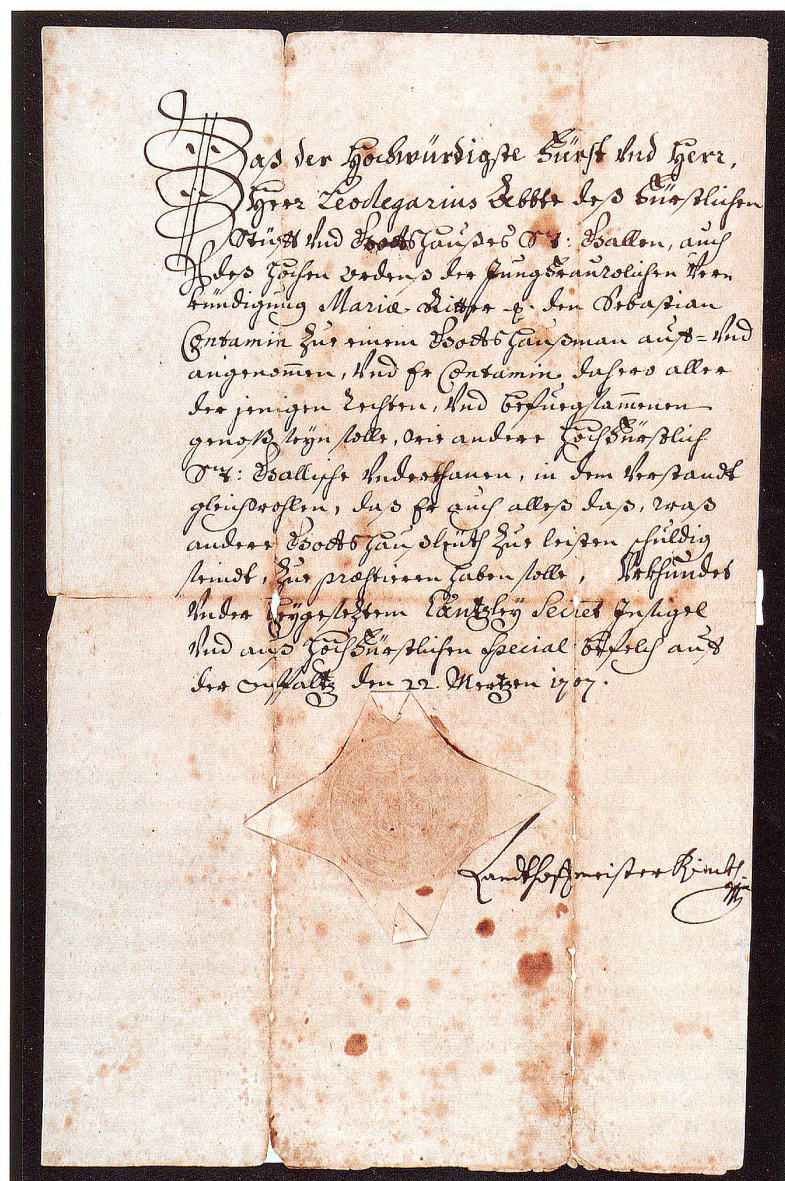 Daß der Hochwürdigste Fürst Vnd Herr,
Herr Leodegarius Abbte deß Fürstlichen
Stüfft Vnd Gottshaußes St: Gallen, auch
deß hochen ordenß der Jungfrauwlichen Ver=
kündigung Mariæ Ritter p. den Sebastian
Contamin Zue einem Gottshaußman auff= Vnd
angenommen, Vnd Er Contamin dahero aller
der jenigen Rechten, Vnd befuegsammenen
genoß seyn solle, wie andere Hochfürstlich
St: Gallische Vnderthanen, in dem Verstandt
gleichwohlen, daß Er auch alleß daß, waß
andere Gottshaußleüth Zue leisten schuldig
seindt, Zue præstieren haben solle, Vrkhundet
Vnder beygesetztem Cantzley Secret Insigel
Vnd auß Hochfürstlichen Special befelch auff
der Pfaltz den 22. Mertzen 1707.
Landthoffmeister